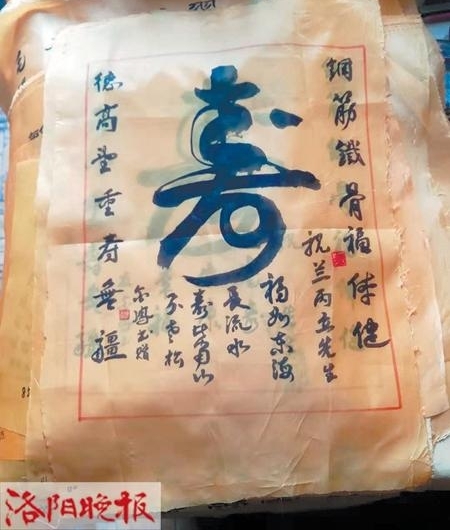 寿
鋼筋鐵骨福体健
祝兰丙立先生
福如东海
長流水
寿比南山
不老松
德高望重寿無疆
洛阳晚报